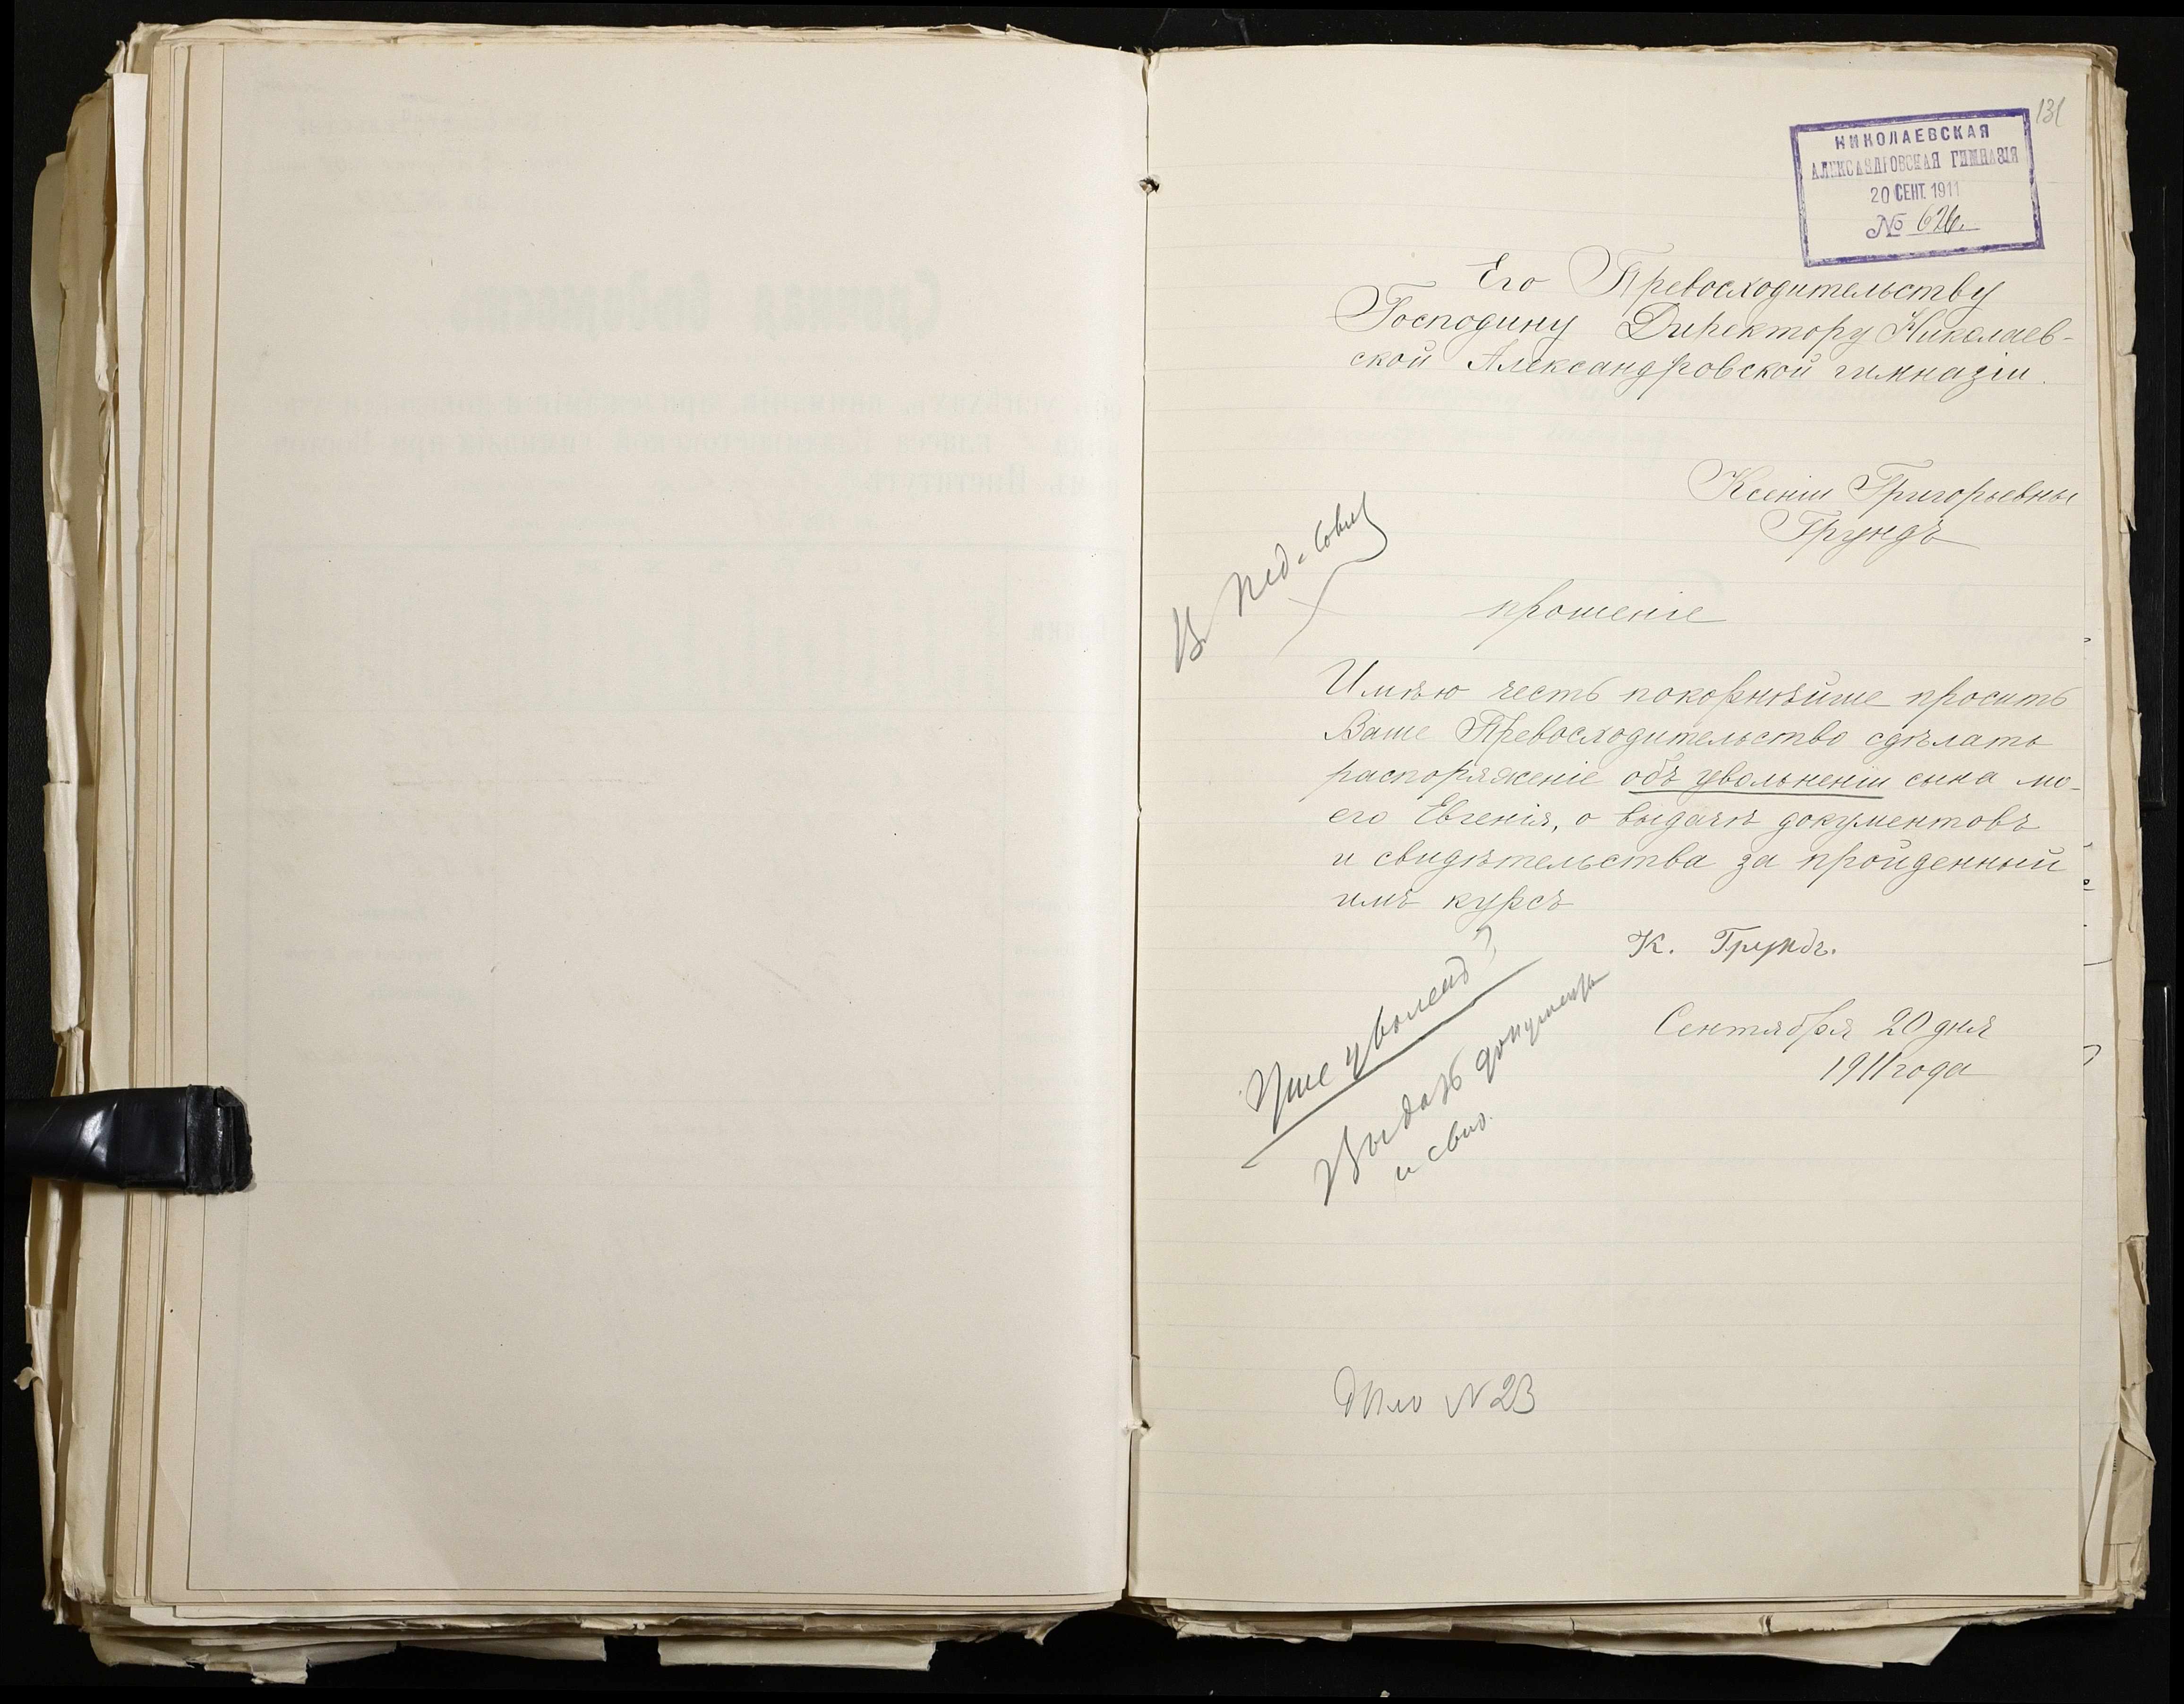 131
НИКОЛАЕВСКАЯ
АЛЕКСАНДРОВСКАЯ ГИМНАЗІЯ
20 СЕНТ. 1911
№ 626.
Его Превосходительству
Господину Директору Николаев-
ской Александровской гимназіи.
Ксеніи Григорьевны
Грундъ
В Пед. Совѣ
прошеніе
Имѣю честь покорнѣйше просить
Ваше Превосходительство сдѣлать
распоряженіе объ увольненіи сына мо-
его Евгенія, о выдачѣ документовъ
и свидѣтельства за пройденный
имъ курсъ
К. Грундъ.
Сентября 20 дня
1911 года
Уже уволенъ?
Выдать документы
и свид.
Дѣло N 23